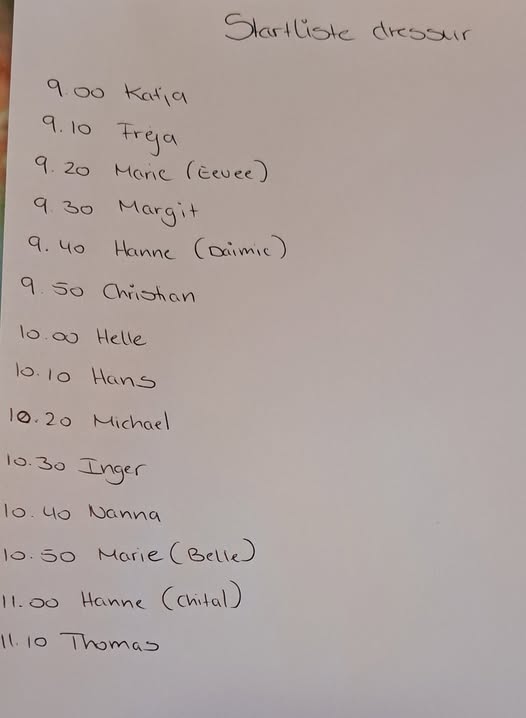 Startliste dressur
9.00 Katja
9.10 Freja
9.20 Marie (Eevee)
9.30 Margit
9.40 Hanne (Daimie)
9.50 Christian
10.00 Helle
10.10 Hans
10.20 Michael
10.30 Inger
10.40 Nanna
10.50 Marie (Belle)
11.00 Hanne (Chital)
11.10 Thomas